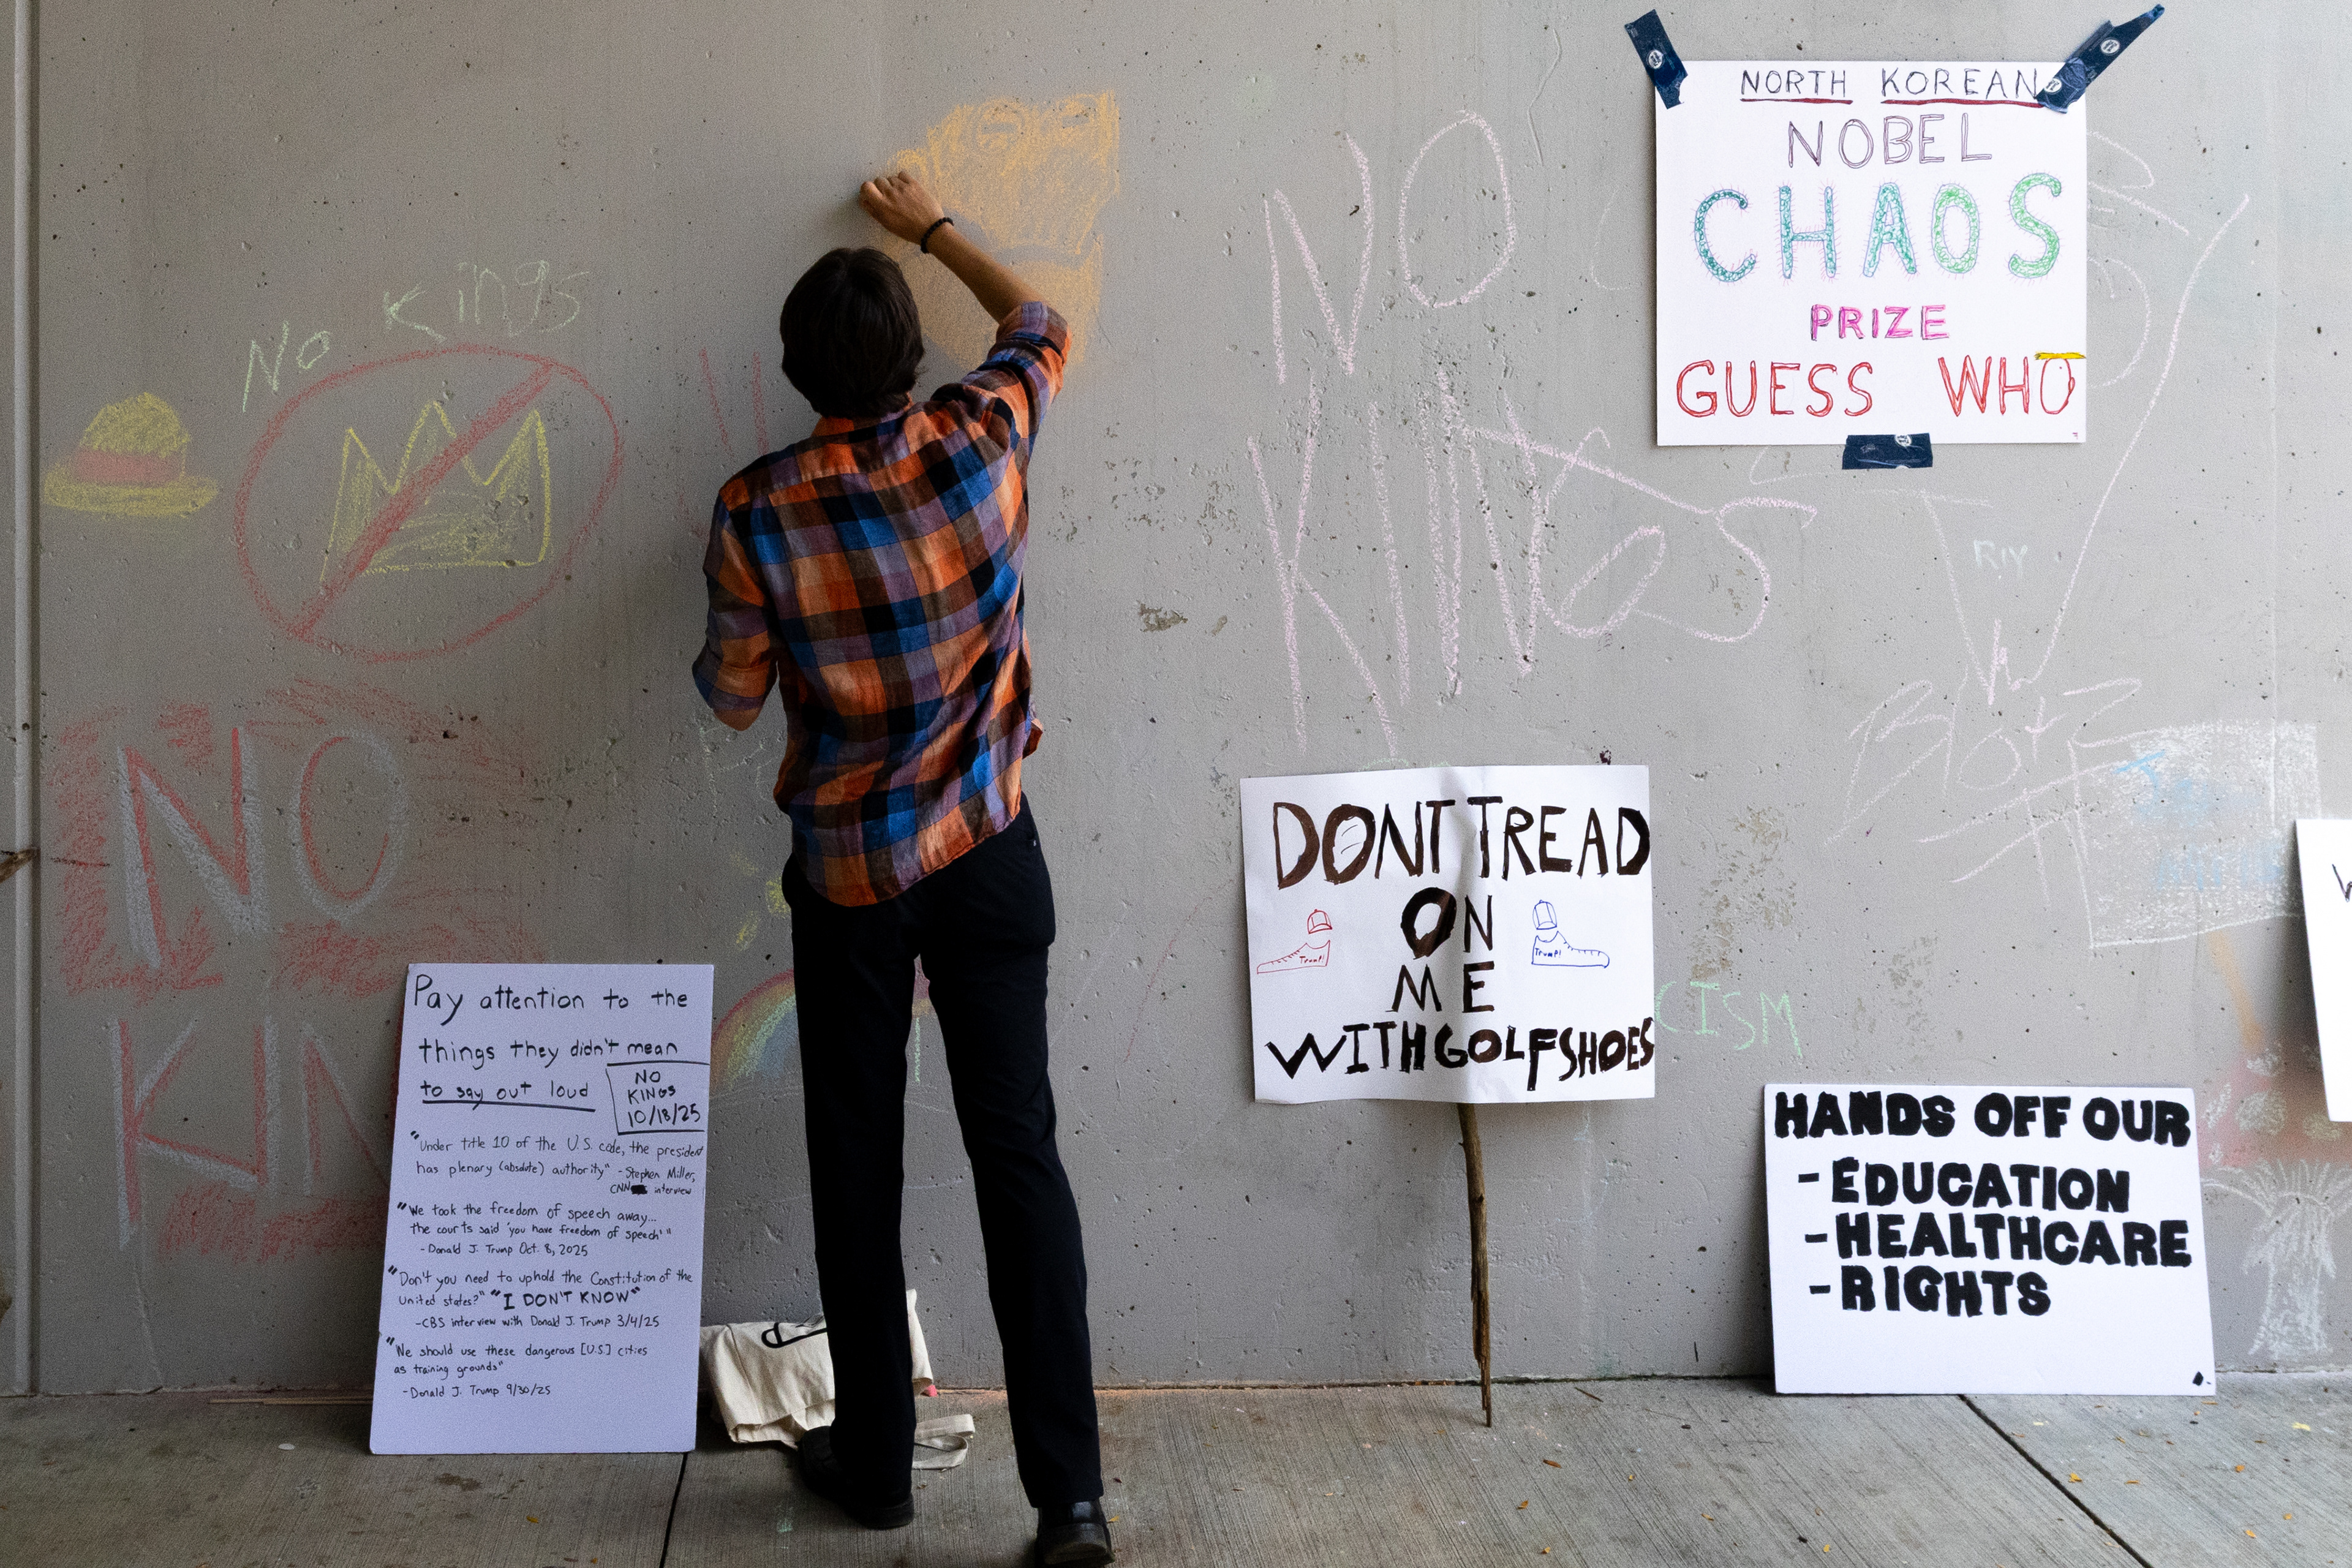 No Kings
NO
KIN
NO
KINGS
NORTH KOREAN
NOBEL
CHAOS
PRIZE
GUESS WHO
RIY
DONT TREAD
ON
ME
WITH GOLF SHOES
Trump!
Trump!
CISM
HANDS OFF OUR
- EDUCATION
- HEALTHCARE
- RIGHTS
Pay attention to the
things they didn't mean
to say out loud
NO
KINGS
10/18/25
"Under title 10 of the U.S. code, the president
has plenary (absolute) authority" - Stephen Miller,
CNN interview
"We took the freedom of speech away...
the courts said 'you have freedom of speech'"
- Donald J. Trump Oct. 8, 2025
"Don't you need to uphold the Constitution of the
United states?" "I DON'T KNOW"
- CBS interview with Donald J. Trump 3/4/25
"We should use these dangerous [U.S.] cities
as training grounds"
- Donald J. Trump 9/30/25